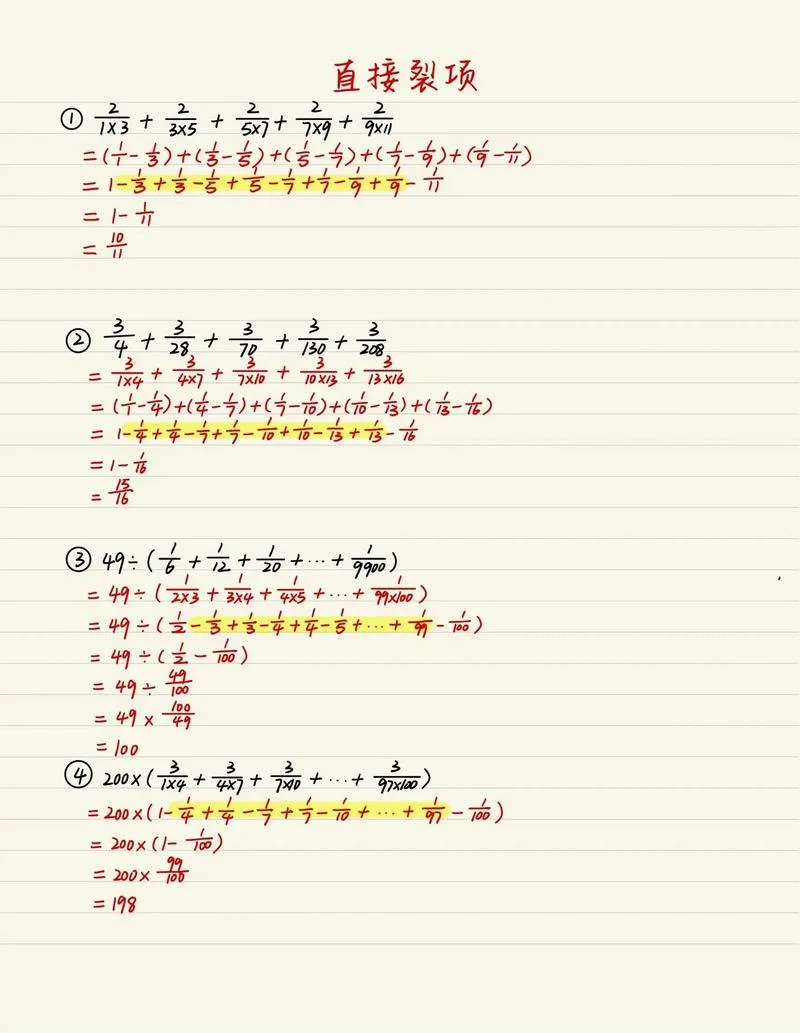 直接裂项
① 2/1×3 + 2/3×5 + 2/5×7 + 2/7×9 + 2/9×11
= (1/1 - 1/3) + (1/3 - 1/5) + (1/5 - 1/7) + (1/7 - 1/9) + (1/9 - 1/11)
= 1 - 1/3 + 1/3 - 1/5 + 1/5 - 1/7 + 1/7 - 1/9 + 1/9 - 1/11
= 1 - 1/11
= 10/11
② 3/4 + 3/28 + 3/70 + 3/130 + 3/208
= 3/1×4 + 3/4×7 + 3/7×10 + 3/10×13 + 3/13×16
= (1/1 - 1/4) + (1/4 - 1/7) + (1/7 - 1/10) + (1/10 - 1/13) + (1/13 - 1/16)
= 1 - 1/4 + 1/4 - 1/7 + 1/7 - 1/10 + 1/10 - 1/13 + 1/13 - 1/16
= 1 - 1/16
= 15/16
③ 49 ÷ (1/6 + 1/12 + 1/20 + ··· + 1/9900)
= 49 ÷ (1/2×3 + 1/3×4 + 1/4×5 + ··· + 1/99×100)
= 49 ÷ (1/2 - 1/3 + 1/3 - 1/4 + 1/4 - 1/5 + ··· + 1/99 - 1/100)
= 49 ÷ (1/2 - 1/100)
= 49 ÷ 49/100
= 49 × 100/49
= 100
④ 200 × (3/1×4 + 3/4×7 + 3/7×10 + ··· + 3/97×100)
= 200 × (1 - 1/4 + 1/4 - 1/7 + 1/7 - 1/10 + ··· + 1/97 - 1/100)
= 200 × (1 - 1/100)
= 200 × 99/100
= 198